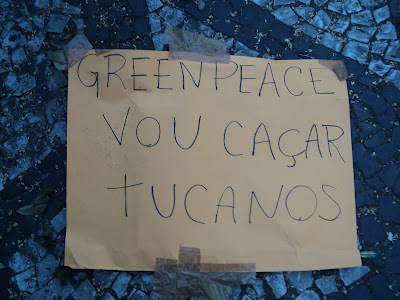 GREENPEACE
VOU CAÇAR
TUCANOS